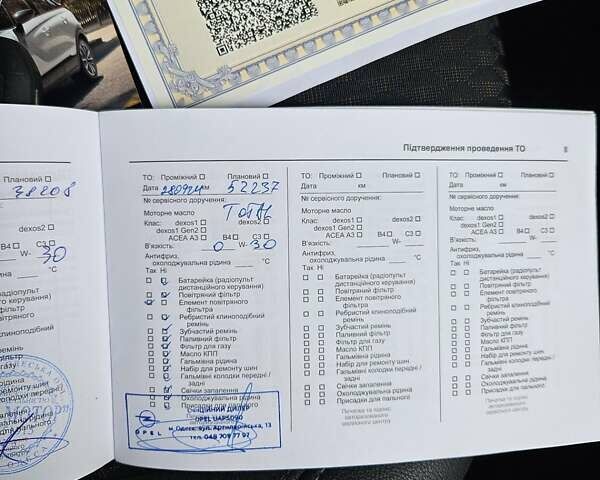 Підтвердження проведення ТО
Плановий
38208
В4 С3
W- 30
°С
ТО: Проміжний Плановий
Дата 280924 км 52237
№ сервісного доручення:
Моторне масло TOTAL
Клас: dexos1 dexos2
dexos1 Gen2
ACEA A3 B4 C3
В'язкість: 0 W- 30
Антифриз,
охолоджувальна рідина °С
Так Ні
Батарейка (радіопульт
дистанційного керування)
Повітряний фільтр
Елемент повітряного
фільтра
Ребристий клиноподібний
ремінь
Зубчастий ремінь
Паливний фільтр
Фільтр для газу
Масло КПП
Гальмівна рідина
Набір для ремонту шин
Гальмівні колодки передні /
задні
Свічки запалення
Охолоджувальна рідина
Присадки для пального
ОФІЦІЙНИЙ ДИЛЕР
OPEL UAP5090
м.Одеса, вул. Артилерійська, 13
тел. 048 709 77 97
OPEL
ТО: Проміжний Плановий
Дата км
№ сервісного доручення:
Моторне масло
Клас: dexos1 dexos2
dexos1 Gen2
ACEA A3 B4 C3
В'язкість: W-
Антифриз,
охолоджувальна рідина °С
Так Ні
Батарейка (радіопульт
дистанційного керування)
Повітряний фільтр
Елемент повітряного
фільтра
Ребристий клиноподібний
ремінь
Зубчастий ремінь
Паливний фільтр
Фільтр для газу
Масло КПП
Гальмівна рідина
Набір для ремонту шин
Гальмівні колодки передні /
задні
Свічки запалення
Охолоджувальна рідина
Присадки для пального
Печатка та підпис
авторизованого
сервісного центру
ТО: Проміжний Плановий
Дата км
№ сервісного доручення:
Моторне масло
Клас: dexos1 dexos2
dexos1 Gen2
ACEA A3 B4 C3
В'язкість: W-
Антифриз,
охолоджувальна рідина °С
Так Ні
Батарейка (радіопульт
дистанційного керування)
Повітряний фільтр
Елемент повітряного
фільтра
Ребристий клиноподібний
ремінь
Зубчастий ремінь
Паливний фільтр
Фільтр для газу
Масло КПП
Гальмівна рідина
Набір для ремонту шин
Гальмівні колодки передні /
задні
Свічки запалення
Охолоджувальна рідина
Присадки для пального
Печатка та підпис
авторизованого
сервісного центру